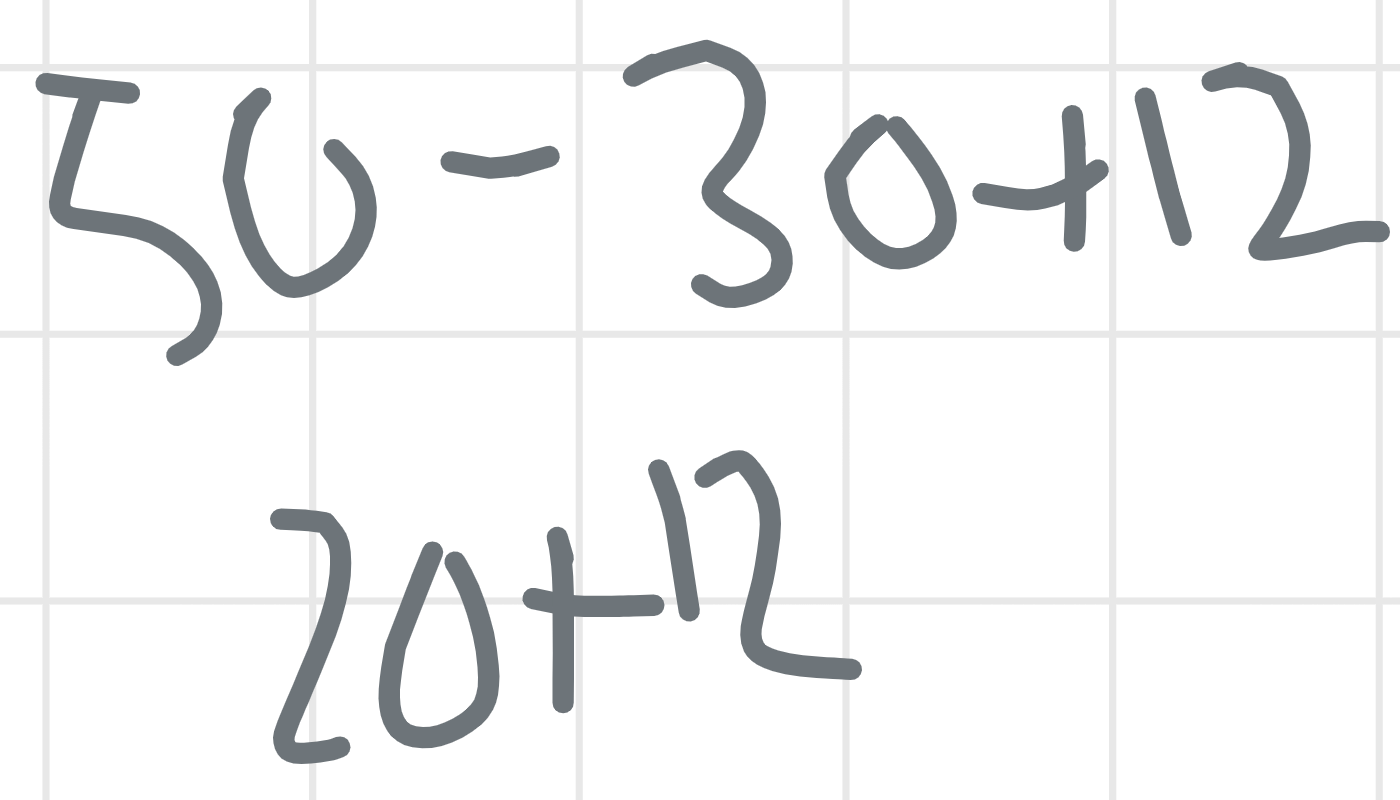 50 - 30 + 12
20 + 12